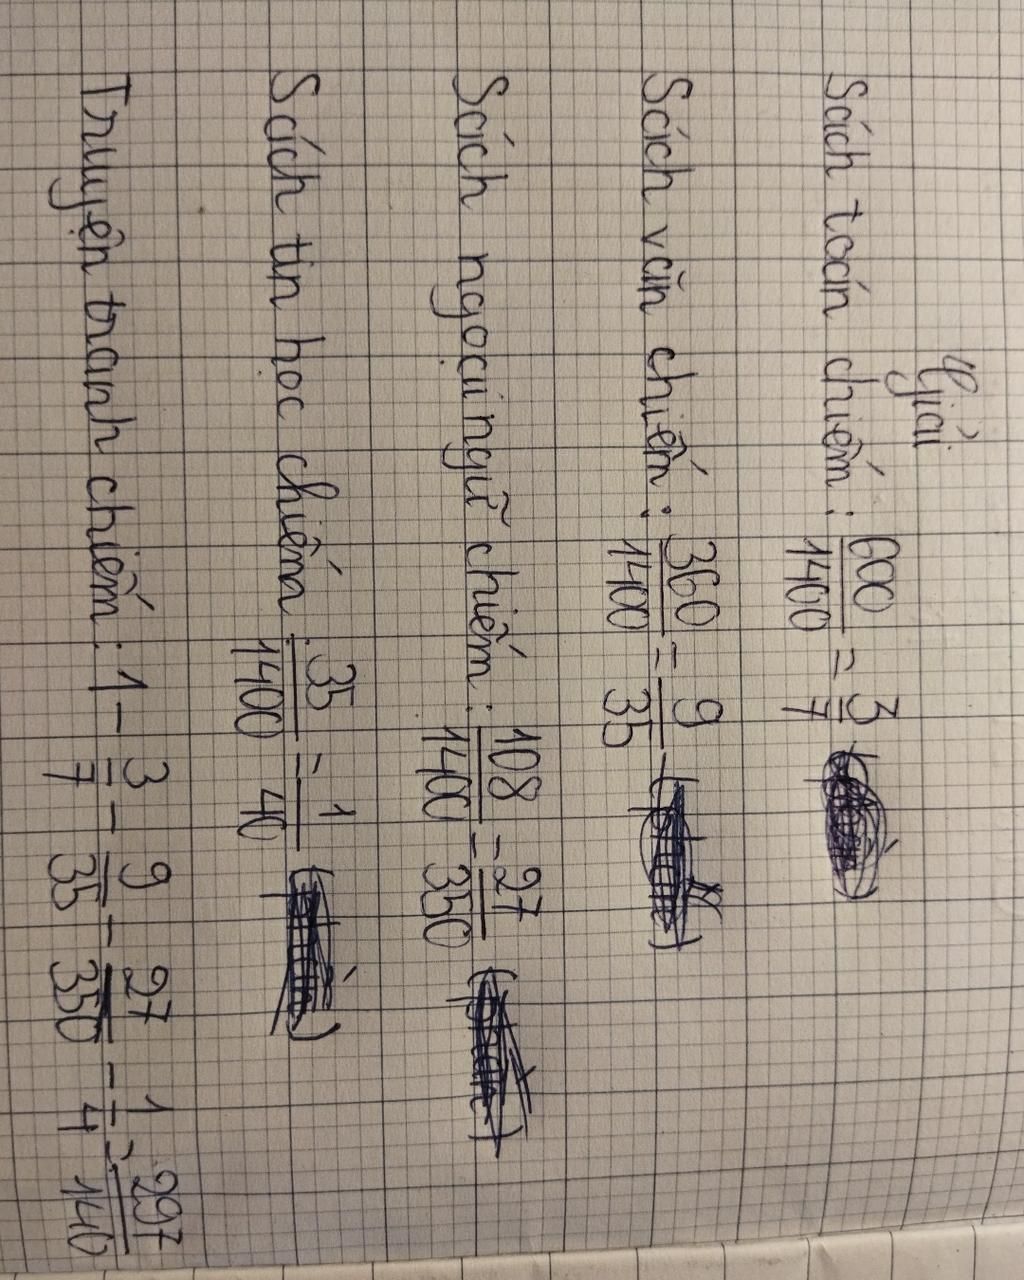 Giải
Sách toán chiếm : 600/1400 = 3/7
Sách văn chiếm : 360/1400 = 9/35
Sách ngoại ngữ chiếm : 108/1400 = 27/350
Sách tin học chiếm : 35/1400 = 1/40
Truyện tranh chiếm : 1 - 3/7 - 9/35 - 27/350 - 1/4 = 297/140